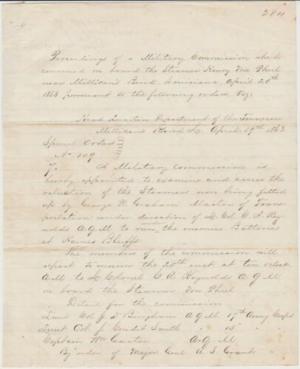 Proceedings of a Military Commission which
convened on board the Steamer Henry Von Phul
near Millikens Bend, Louisiana, April 20th
1863 pursuant to the following orders Viz:
Head Quarters Department of the Tennessee
Millikens Bend La. April 19th 1863
Special Orders
No 109
A Military commission is
hereby appointed to examine and assess the
valuation of the Steamers now being fitted
up by George W. Graham Master of Trans
portation under direction of Lt Col C. A. Rey
nolds A Q M to run the enemies Batteries
at Haines Bluff
The members of the commission will
report to music the 20th inst at ten oclock
A.M. to Lt Colonel C A Reynolds A Q M
on board the Steamer Von Phul
Detail for the commission
Lieut Col J D Bingham A Q M 17th Army Corps
Lieut Col J Condit Smith
Captain Wm Gaster A Q M
By order of Major Genl U. S. Grant